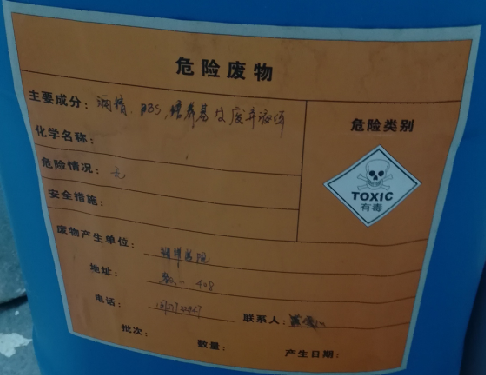 危险废物
主要成分：酒精、PBS、培养基及废弃液体
危险类别
化学名称：
危险情况：无
TOXIC
有毒
安全措施：
废物产生单位：
地址： - 408
电话：
联系人：
批次： 数量： 产生日期：